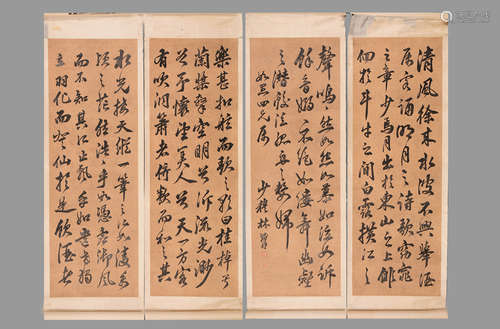 清風徐来水波不興舉酒
屬客誦明月之詩歌窈窕
之章少焉月出於東山之上徘
徊於斗牛之間白露横江
聲鳴然如慕如泣如訴
餘音嫋々不絕如縷舞幽壑
之潛蛟泣孤舟之嫠婦
四兄屬 少穆林
樂甚扣舷而歌之歌曰桂棹兮
蘭槳擊空明兮泝流光渺
兮予懷望美人兮天一方客
有吹洞簫者倚歌而和之其
水光接天縱一葦之所如凌萬
頃之茫然浩浩乎如憑虚御風
而不知其所止飄乎如遺世獨
立羽化而登仙於是飲酒